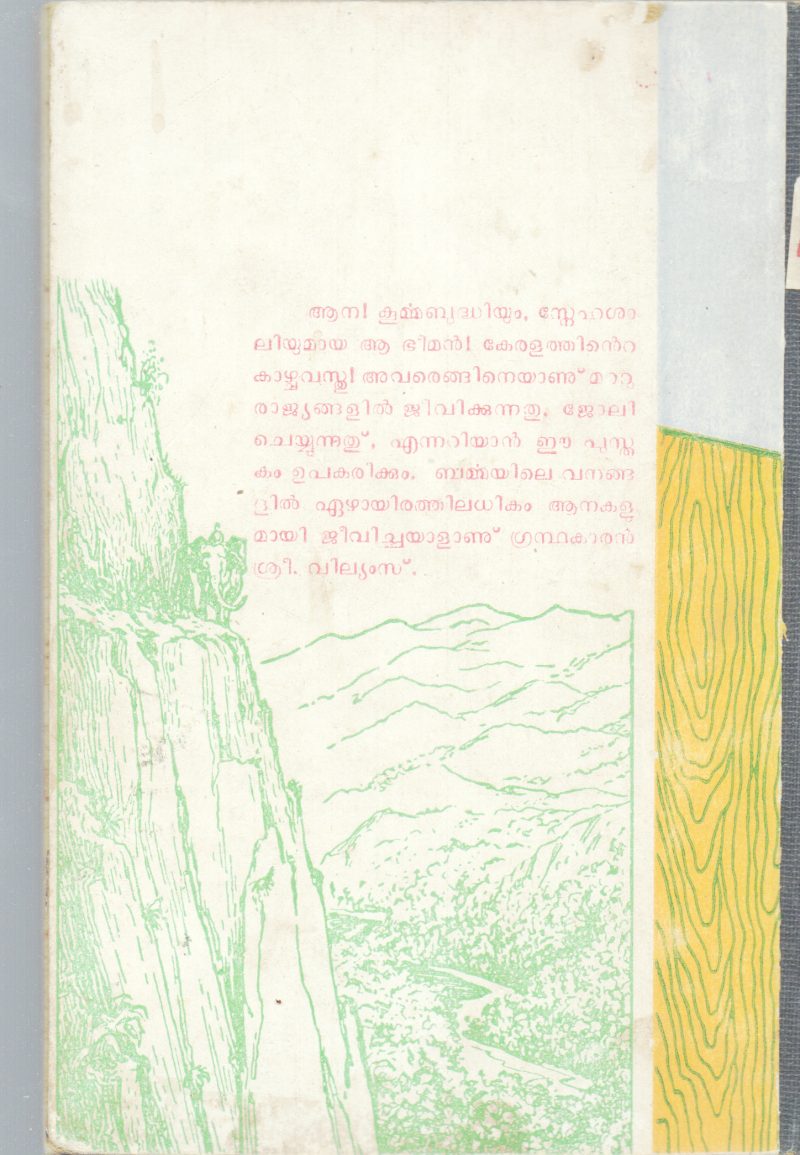 ആന! കൂൎമ്മബുദ്ധിയും, സ്നേഹശാ
ലിയുമായ ആ ഭീമൻ! കേരളത്തിൻെറ
കാഴ്ചവസ്തു! അവരെങ്ങിനെയാണു് മററു
രാജ്യങ്ങളിൽ ജീവിക്കുന്നതു, ജോലി
ചെയ്യുന്നതു്, എന്നറിയാൻ ഈ പുസ്ത
കം ഉപകരിക്കും. ബൎമ്മയിലെ വനങ്ങ
ളിൽ ഏഴായിരത്തിലധികം ആനകളു
മായി ജീവിച്ചയാളാണു് ഗ്രന്ഥകാരൻ
ശ്രീ. വില്യംസ്.